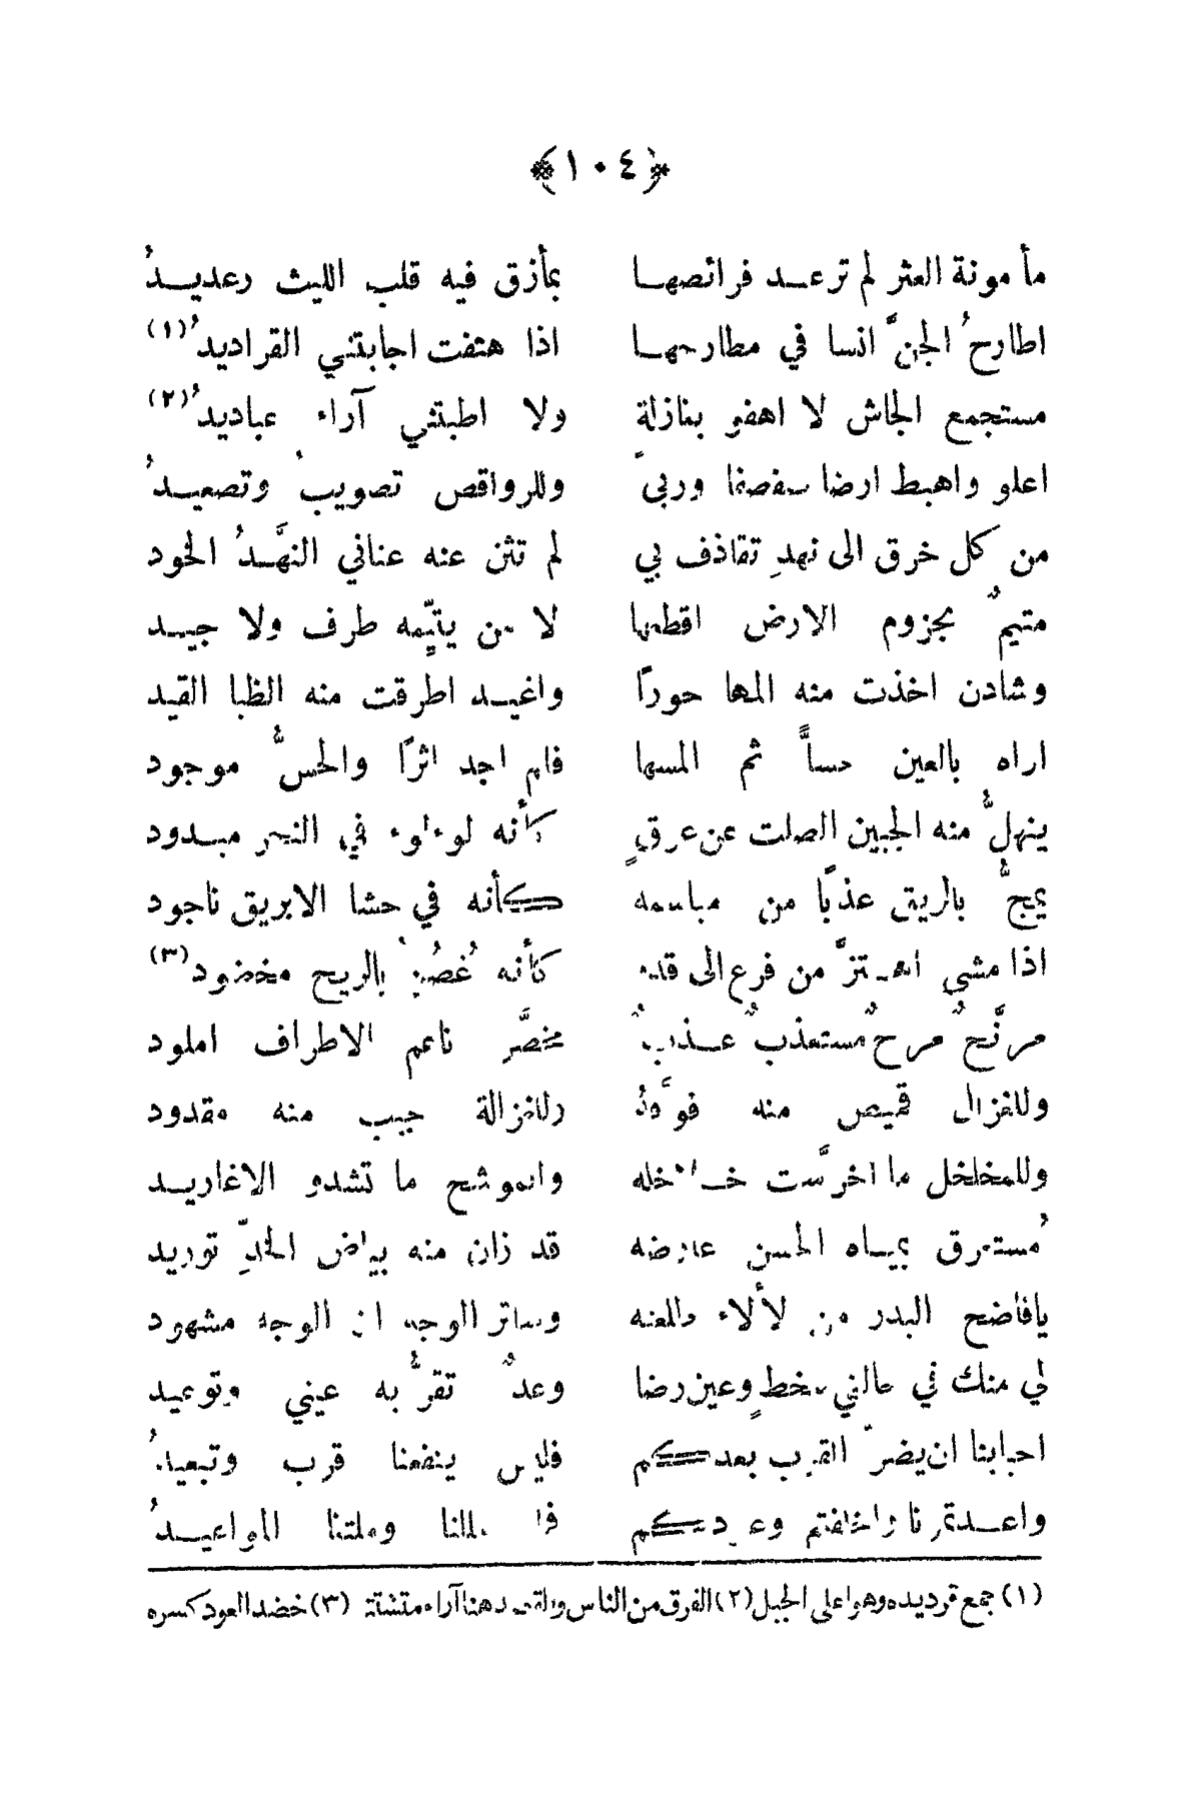 ﴿١٠٤﴾
مأمونة العثر لم ترعد فرائصها بمأزق فيه قلب الليث رعديدُ
اطارحُ الجنَّ انسا في مطارحها اذا هتفت اجابتني القراديدُ(١)
مستجمع الجاش لا اهفو بنازلة ولا اطبتني آراء عباديدُ(٢)
اعلو واهبط ارضا صفصفا وربىً وللرواقص تصويبُ وتصعيدُ
من كل خرق الى نهدِ تقاذف بي لم تثن عنه عناني النهَّدُ الخود
متيمٌ بجزوم الارض اقطعها لا من يتيِّمه طرف ولا جيد
وشادن اخذت منه المها حورًا واغيد اطرقت منه الظبا القيد
اراه بالعين حساًّ ثم المسها فلم اجد اثرًا والحسُّ موجود
ينهلُّ منه الجبين الصلت عن عرقٍ كأنه لوءلوء في النحر مبدود
يمجُّ بالريق عذبًا من مباسمه كأنه في حشا الابريق ناجود
اذا مشى اهتزَّ من فرع الى قدم كأنه غُصُنُ بالريح مخضود(٣)
مرنَّحٌ مرحٌ مستعذبٌ عذبٌ مخصَّر ناعم الاطراف املود
وللغزال قميص منه فوَّدُ وللغزالة جيب منه مقدود
وللمخلخل ما اخرَّست خلاخله والموشح ما تشدو الاغاريد
مُستغرق بمياه الحسن عارضه قد زان منه بياض الخدِّ توريد
يافاضح البدر من لألاء طلعته وساتر الوجه ان الوجه مشهود
لي منك في حالتي سخطٍ وعين رضا وعدٌ تقرُّ به عيني وتوعيد
احبابنا ان يضرّ القرب بعدكم فليس ينفعنا قرب وتبعيدُ
واعدتمونا واخلفتم وعودكم وملتنا المواعيدُ
(١) جمع قرديده وهو اعلى الجبل (٢) الفرق من الناس والقصد هنا آراء متشتتة (٣) خضد العود كسره